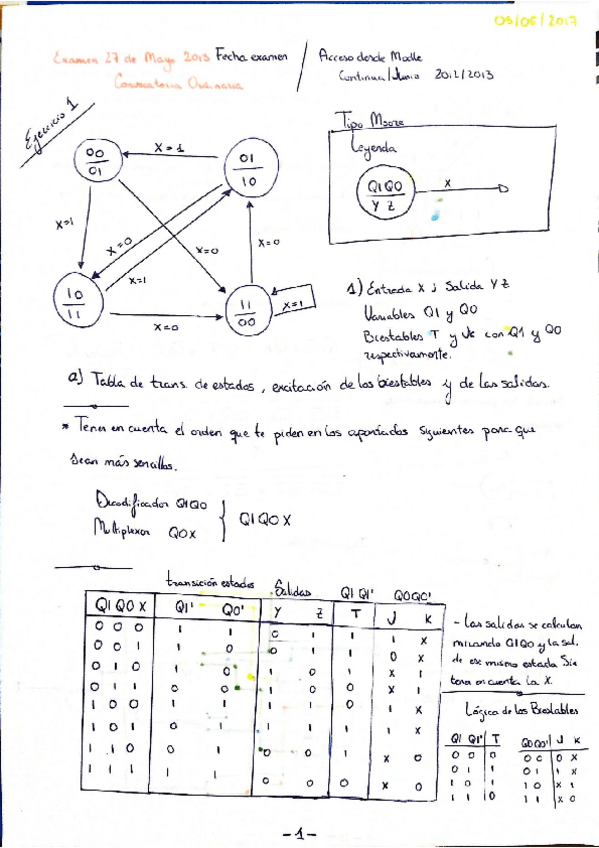 03/06/2017
Examen 27 de Mayo 2013 Fecha examen / Acceso desde Moodle
Convocatoria Ordinaria
Continua/Junio 2012/2013
Ejercicio 1
Tipo Moore
Leyenda
Q1Q0
Y Z
X
00
01
X=1
01
10
X=1
X=0
X=1
X=0
X=0
10
11
X=0
11
00
X=1
1) Entrada X ; Salida YZ
Variables Q1 y Q0
Biestables T y JK con Q1 y Q0
respectivamente.
a) Tabla de trans. de estados, excitación de los biestables y de las salidas.
* Tener en cuenta el orden que te piden en los apartados siguientes para que
sean más sencillos.
Decodificador Q1Q0
Multiplexor Q0X
Q1Q0X
transición estados Salidas Q1 Q1' Q0Q0'
Q1 Q0 X Q1' Q0' Y Z T J K
0 0 0 1 1 0 1 1 1 X
0 0 1 1 0 0 1 1 0 X
0 1 0 1 0 1 0 1 X 1
0 1 1 0 0 1 0 0 X 1
1 0 0 1 1 1 1 0 1 X
1 0 1 0 1 1 1 1 1 X
1 1 0 0 1 0 0 1 X 0
1 1 1 1 1 0 0 0 X 0
- Las salidas se calculan
mirando Q1Q0 y la sal.
de ese mismo estado. Sin
tener en cuenta la X.
Lógica de los Biestables
Q1 Q1' T
0 0 0
0 1 1
1 0 1
1 1 0
Q0Q0' J K
0 0 0 X
0 1 1 X
1 0 X 1
1 1 X 0
-1-